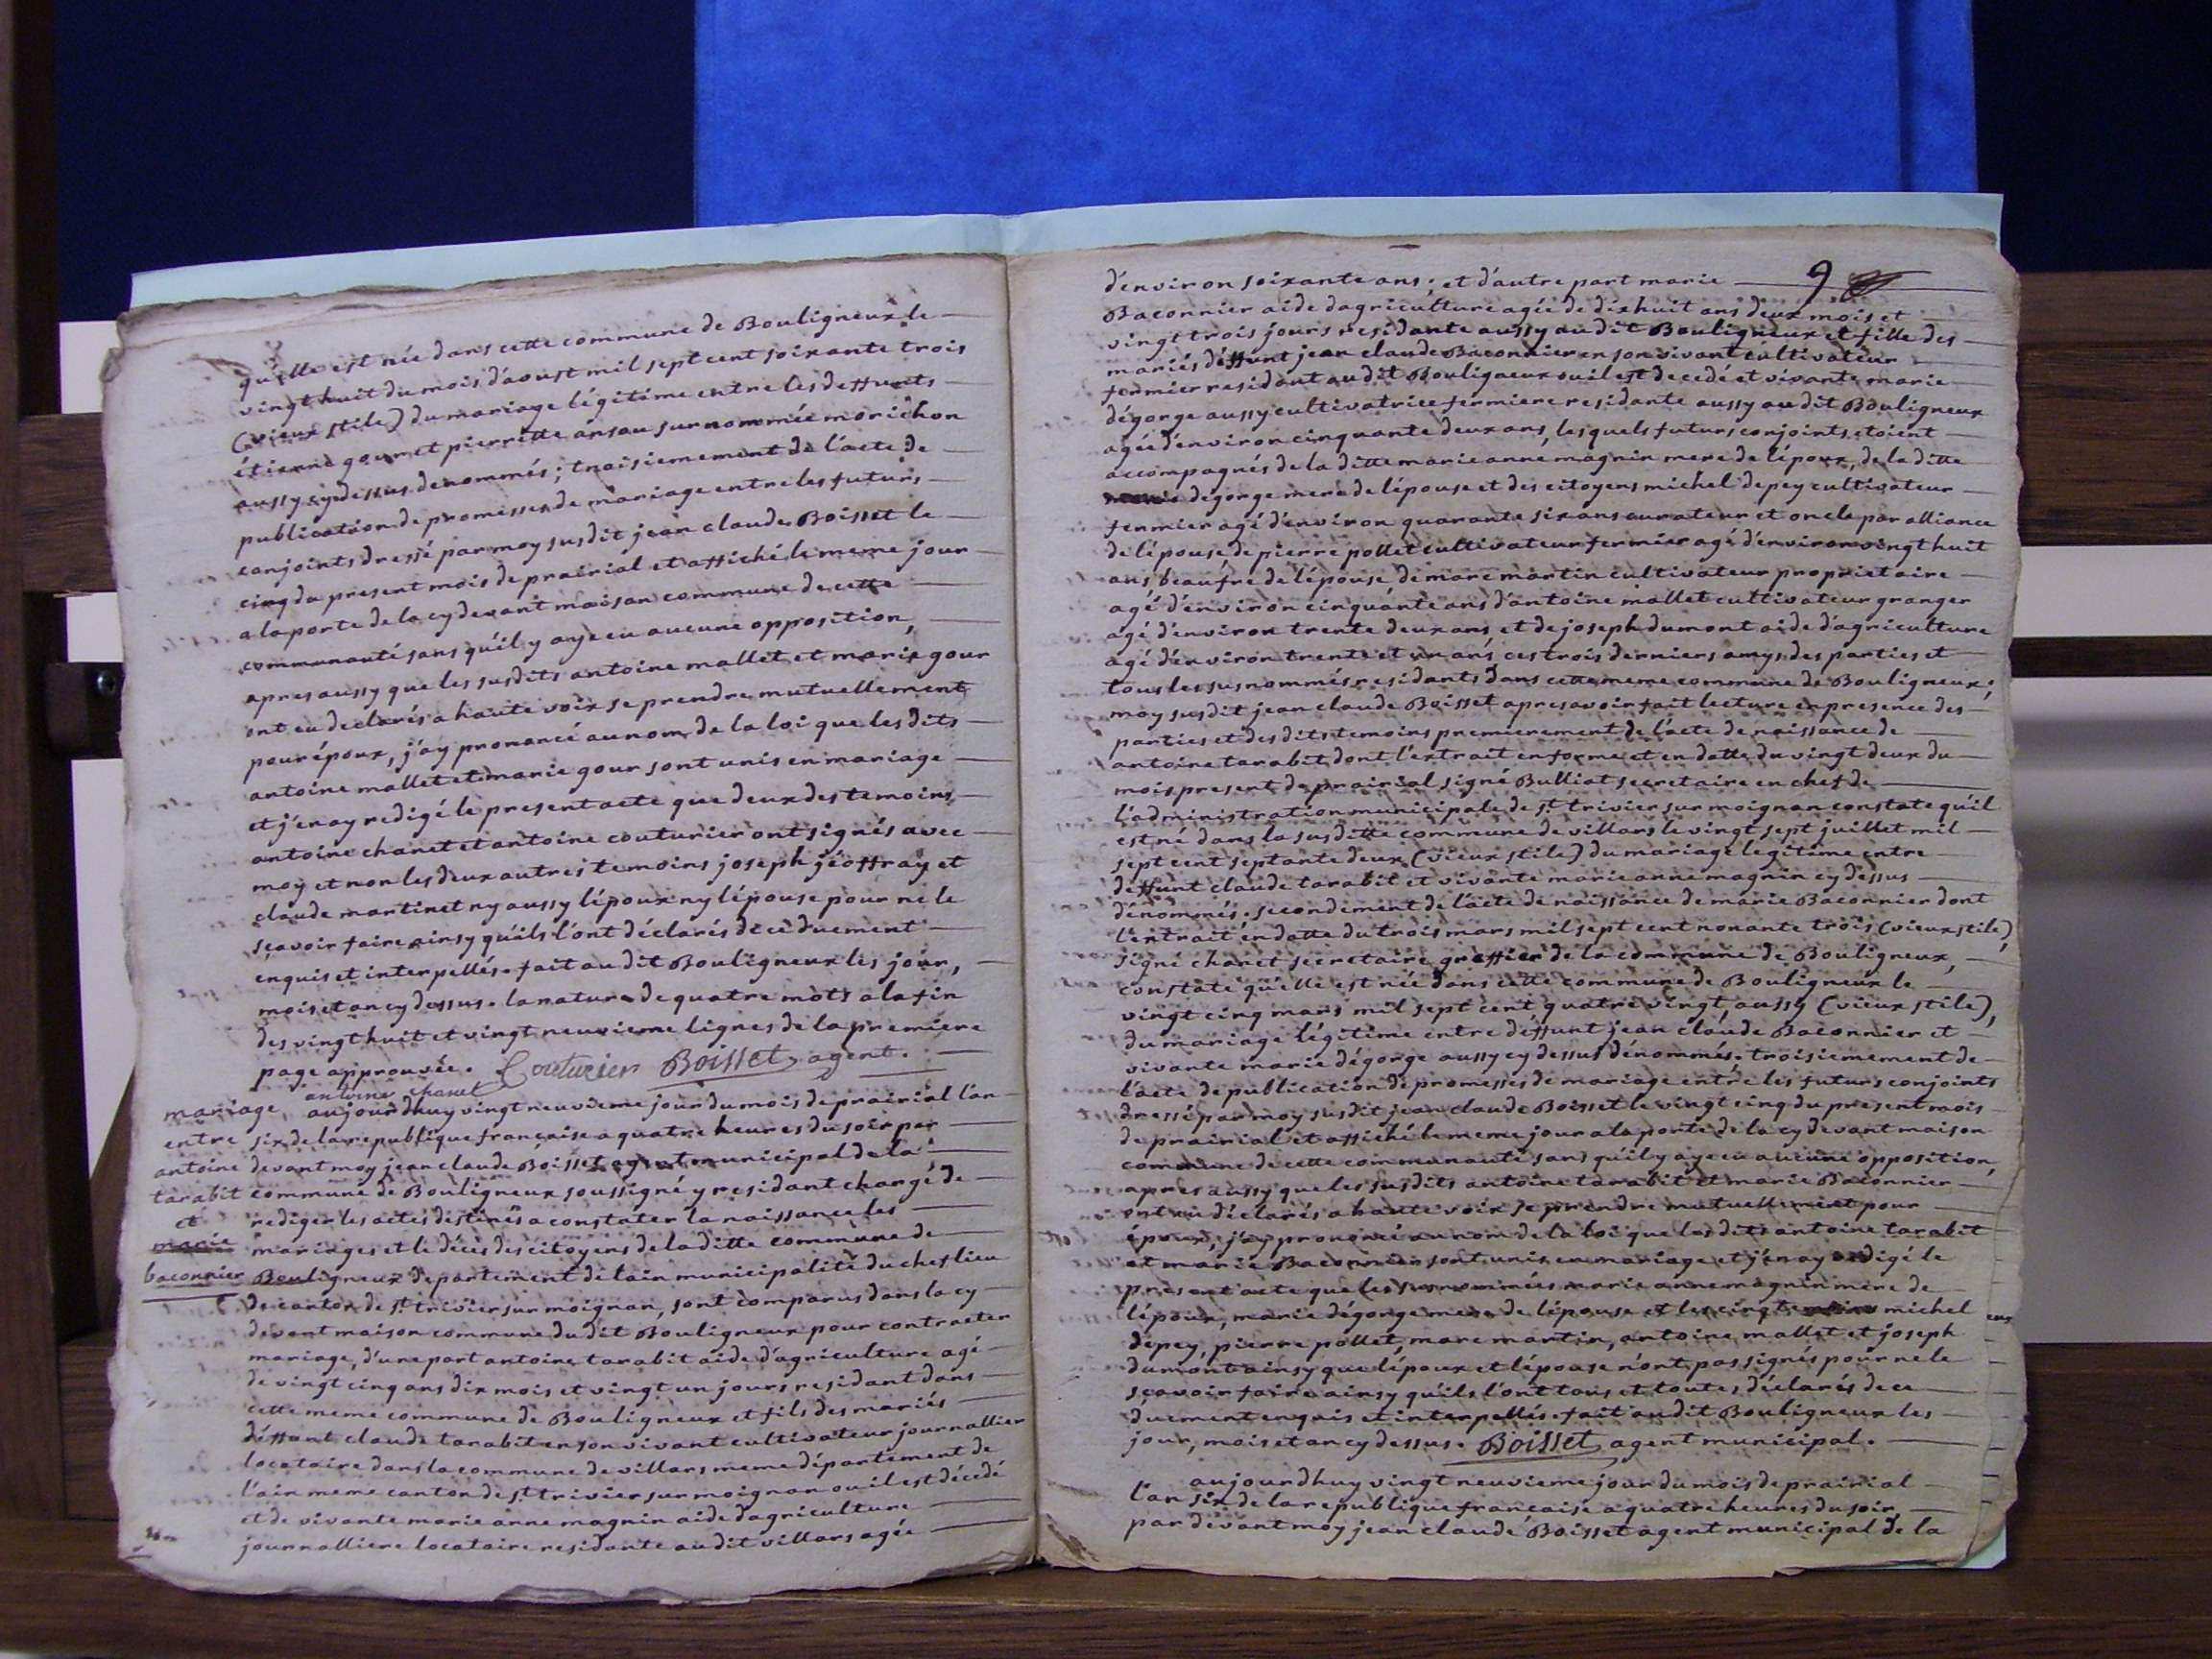 qu'elle est née dans cette commune de Bouligneux le
vingt huit du mois d'aoust mil sept cent soixante trois
(vieux stile) du mariage légitime entre les deffunts
étienne gour et pierrette ansau surnommée morichon
aussy cydessus denommés; troisiemement de l'acte de
publication de promesses de mariage entre les futurs
conjoints dressé par moy susdit jean claude Boisset le
cinq du present mois de prairial et affiché le meme jour
a la porte de la cy devant maison commune de cette
communauté sans qu'il y aye eu aucune opposition,
apres aussy que les susdits antoine mallet et marie gour
ont eu declarés a haute voix se prendre mutuellement
pour époux, j'ay prononcé au nom de la loi que les dits
antoine mallet et marie gour sont unis en mariage
et j'en ay redigé le present acte que deux des temoins
antoine chanet et antoine couturier ont signés avec
moy et non les deux autres temoins joseph jéoffray et
claude martinet ny aussy l'époux ny l'épouse pour ne le
sçavoir faire ainsy qu'ils l'ont déclarés de ce duement
enquis et interpellés. fait au dit Bouligneux les jour,
mois et an cy dessus. la nature de quatre mots a la fin
des vingt huit et vingt neuvieme lignes de la premiere
page approuvée. Couturier Boisset agent.
antoine chanet
mariage
entre
antoine
tarabit
et
marie
baconnier
aujourdhuy vingt neuvieme jour du mois de prairial l'an
six de la republique française a quatre heures du soir par
devant moy jean claude Boisset agent municipal de la
commune de Bouligneux soussigné y residant chargé de
rediger les actes destinés a constater la naissance les
mariages et le décès des citoyens de la ditte commune de
Bouligneux departement de lain municipalité du chef lieu
de canton de st trivier sur moignan, sont comparus dans la cy
devant maison commune du dit Bouligneux pour contracter
mariage, d'une part antoine tarabit aide d'agriculture agé
de vingt cinq ans dix mois et vingt un jours residant dans
cette meme commune de Bouligneux et fils des mariés
déffunt claude tarabit en son vivant cultivateur journallier
locataire dans la commune de villars meme département de
l'ain meme canton de st trivier sur moignan ou il est décédé
et de vivante marie anne magnin aide d'agriculture
journalliere locataire residante au dit villars agée
9
d'environ soixante ans; et d'autre part marie
Baconnier aide dagriculture agée de dix huit ans deux mois et
vingt trois jours residante aussy au dit Bouligneux et fille des
mariés déffunt jean claude Baconnier en son vivant cultivateur
fermier residant au dit Bouligneux ou il est decedé et vivante marie
dégorge aussy cultivatrice fermiere residante aussy au dit Bouligneux
agée d'environ cinquante deux ans, lesquels futurs conjoints étoient
accompagnés de la ditte marie anne magnin mere de l'époux, de la ditte
dégorge mere de l'épouse et des citoyens michel depey cultivateur
fermier agé d'environ quarante six ans curateur et oncle par alliance
de l'épouse de pierre pollet cultivateur fermier agé d'environ vingt huit
ans beaufre de l'épouse de marc martin cultivateur propriétaire
agé d'environ cinquante ans d'antoine mallet cultivateur granger
agé d'environ trente deux ans, et de joseph dumont aide d'agriculture
agé d'environ trente et un ans, ces trois derniers amys des parties et
tous les susnommés residants dans cette meme commune de Bouligneux;
moy susdit jean claude Boisset apres avoir fait lecture en presence des
parties et des dits temoins premierement de l'acte de naissance de
antoine tarabit dont l'extrait en forme et en datte du vingt deux du
mois present de prairial signé Bulliat secretaire en chef de
l'administration municipale de st trivier sur moignan constate qu'il
est né dans la susditte commune de villars le vingt sept juillet mil
sept cent septante deux (vieux stile) du mariage legitime entre
deffunt claude tarabit et vivante marie anne magnin cy dessus
dénommés. secondement de l'acte de naissance de marie Baconnier dont
l'extrait en datte du trois mars mil sept cent nonante trois (vieux stile),
signé chanet secretaire greffier de la commune de Bouligneux,
constate qu'elle est née dans cette commune de Bouligneux le
vingt cinq mars mil sept cent quatre vingt, aussy (vieux stile),
du mariage légitime entre déffunt jean claude Baconnier et
vivante marie dégorge aussy cy dessus dénommés. troisiemement de
l'acte de publication de promesses de mariage entre les futurs conjoints
dressé par moy susdit jean claude Boisset le vingt cinq du present mois
de prairial et affiché le meme jour a la porte de la cy devant maison
commune de cette communauté sans qu'il y aye eu aucune opposition,
apres aussy que les susdits antoine tarabit et marie Baconnier
ont eu déclarés a haute voix se prendre mutuellement pour
époux, j'ay prononcé au nom de la loi que les dits antoine tarabit
et marie Baconnier sont unis en mariage et j'en ay redigé le
present acte que les surnommées marie anne magnin mere de
l'époux, marie dégorge mere de l'épouse et les cinq temoins michel
depey, pierre pollet, marc martin, antoine mallet et joseph
dumont ainsy que l'époux et l'épouse n'ont pas signés pour ne le
sçavoir faire ainsy qu'ils l'ont tous et toutes déclarés de ce
duement enquis et interpellés. fait au dit Bouligneux les
jour, mois et an cy dessus. Boisset agent municipal.
aujourdhuy vingt neuvieme jour du mois de prairial
l'an six de la republique française a quatre heures du soir
par devant moy jean claude Boisset agent municipal de la